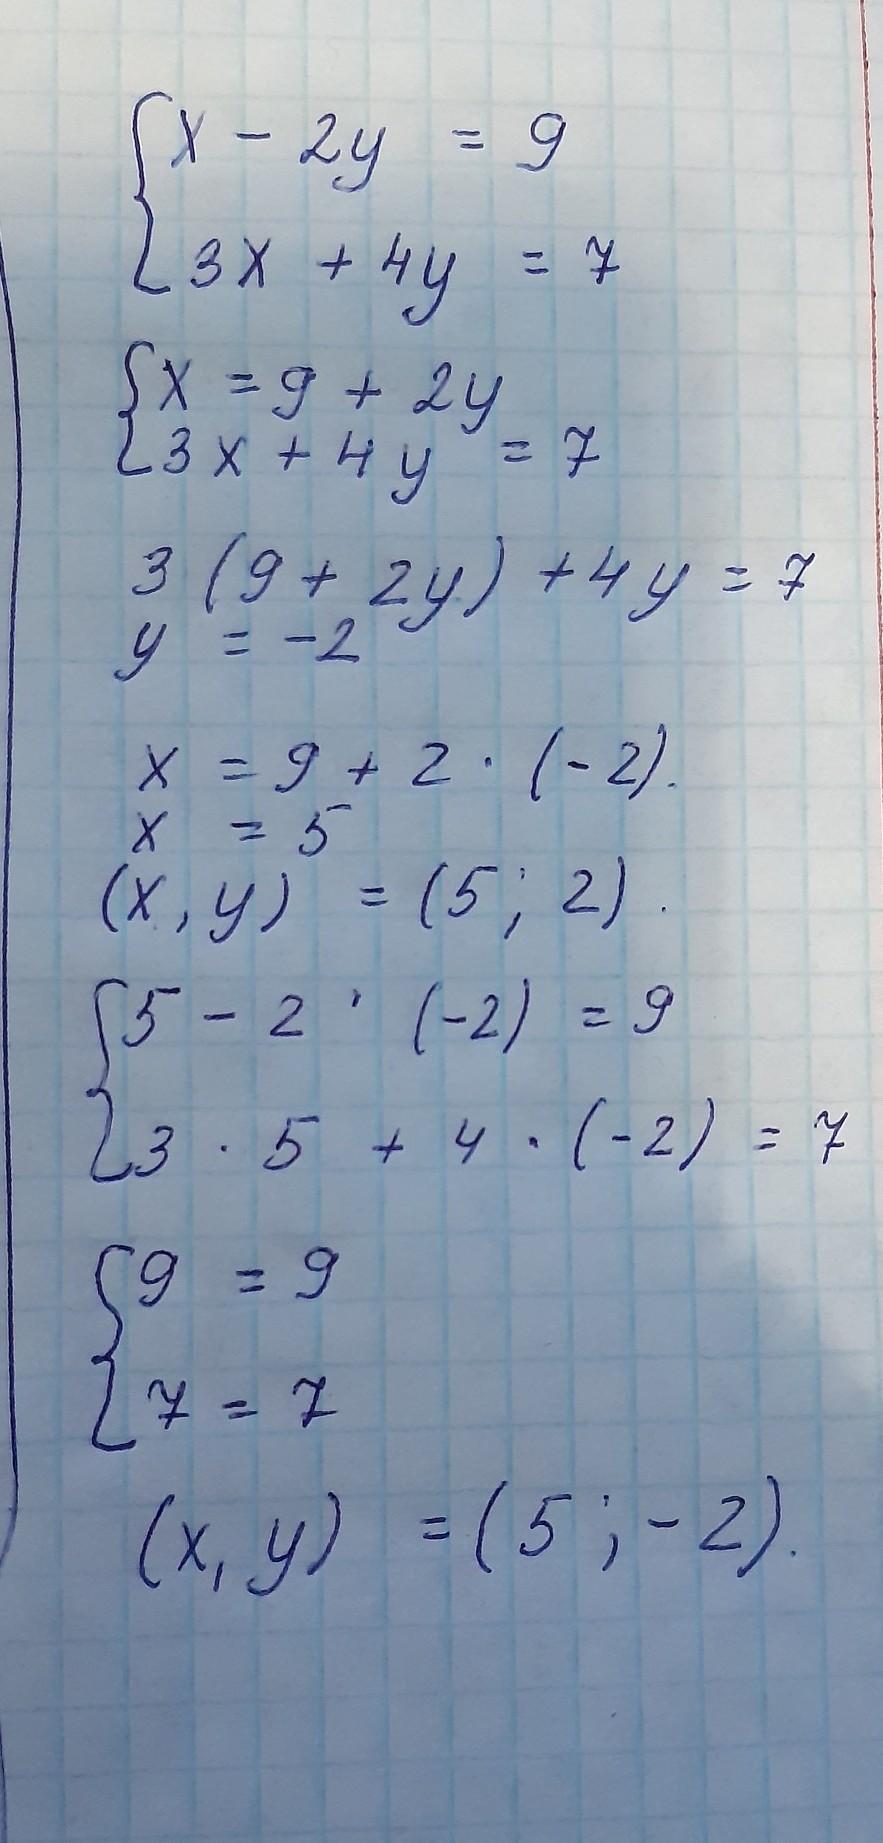 {x - 2y = 9
3x + 4y = 7
{x = 9 + 2y
3x + 4y = 7
3 (9 + 2y) + 4y = 7
y = -2
x = 9 + 2 · (-2).
x = 5
(x, y) = (5; 2).
{5 - 2 · (-2) = 9
3 · 5 + 4 · (-2) = 7
{9 = 9
7 = 7
(x, y) = (5; -2).